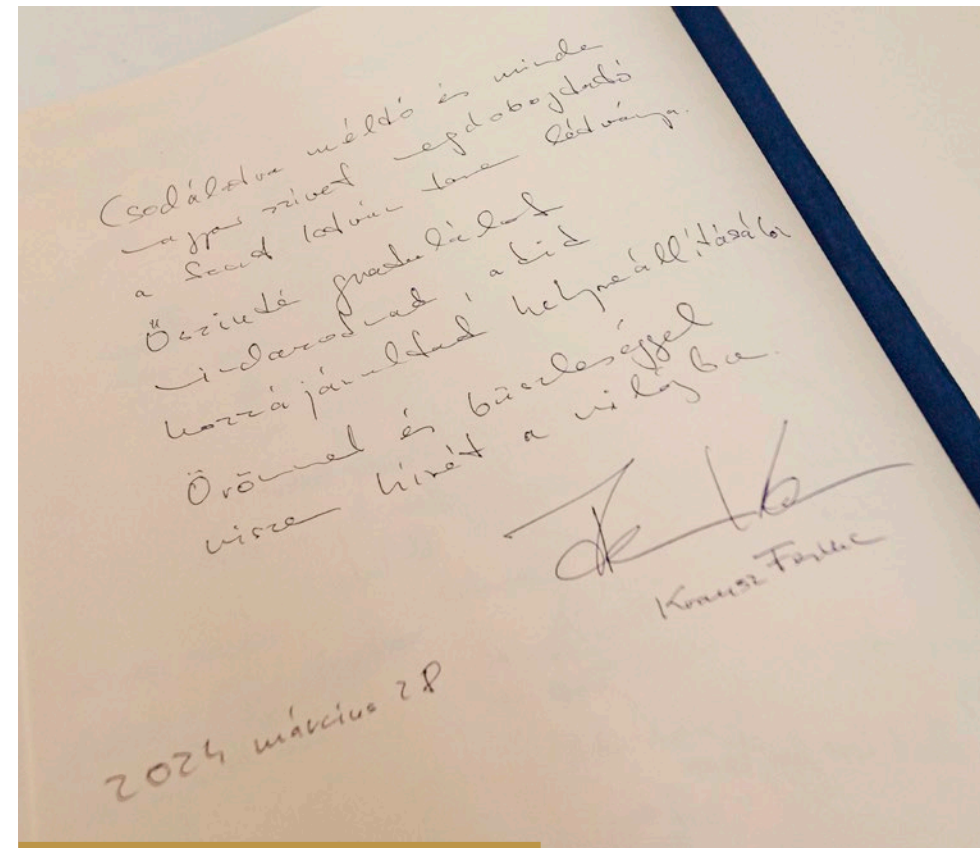 Csodálatra méltó és minden
magyar szívet megdobogtató
a Szent István terem látványa.
Őszinte gratulálok
mindazoknak, akik
hozzájárultak helyreállításához
Örömmel és büszkeséggel
viszem hírét a világba.
Krausz Ferenc
2024 március 28